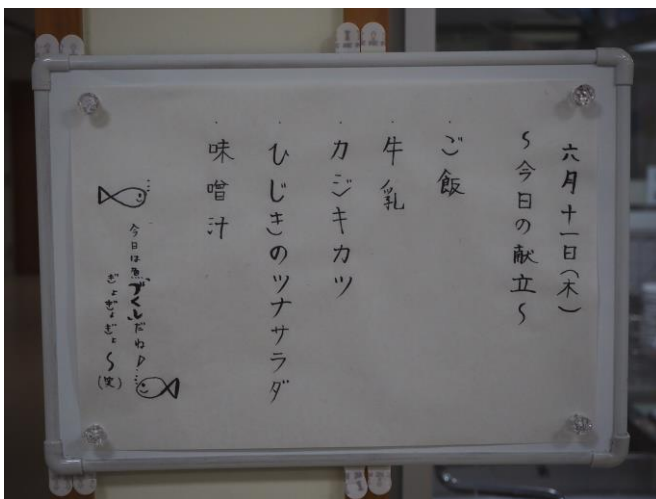 六月十一日(木)
～今日の献立～
・ご飯
・牛乳
・カジキカツ
・ひじきのツナサラダ
・味噌汁
今日は魚づくしだね♪
ぎょぎょぎょ～(笑)